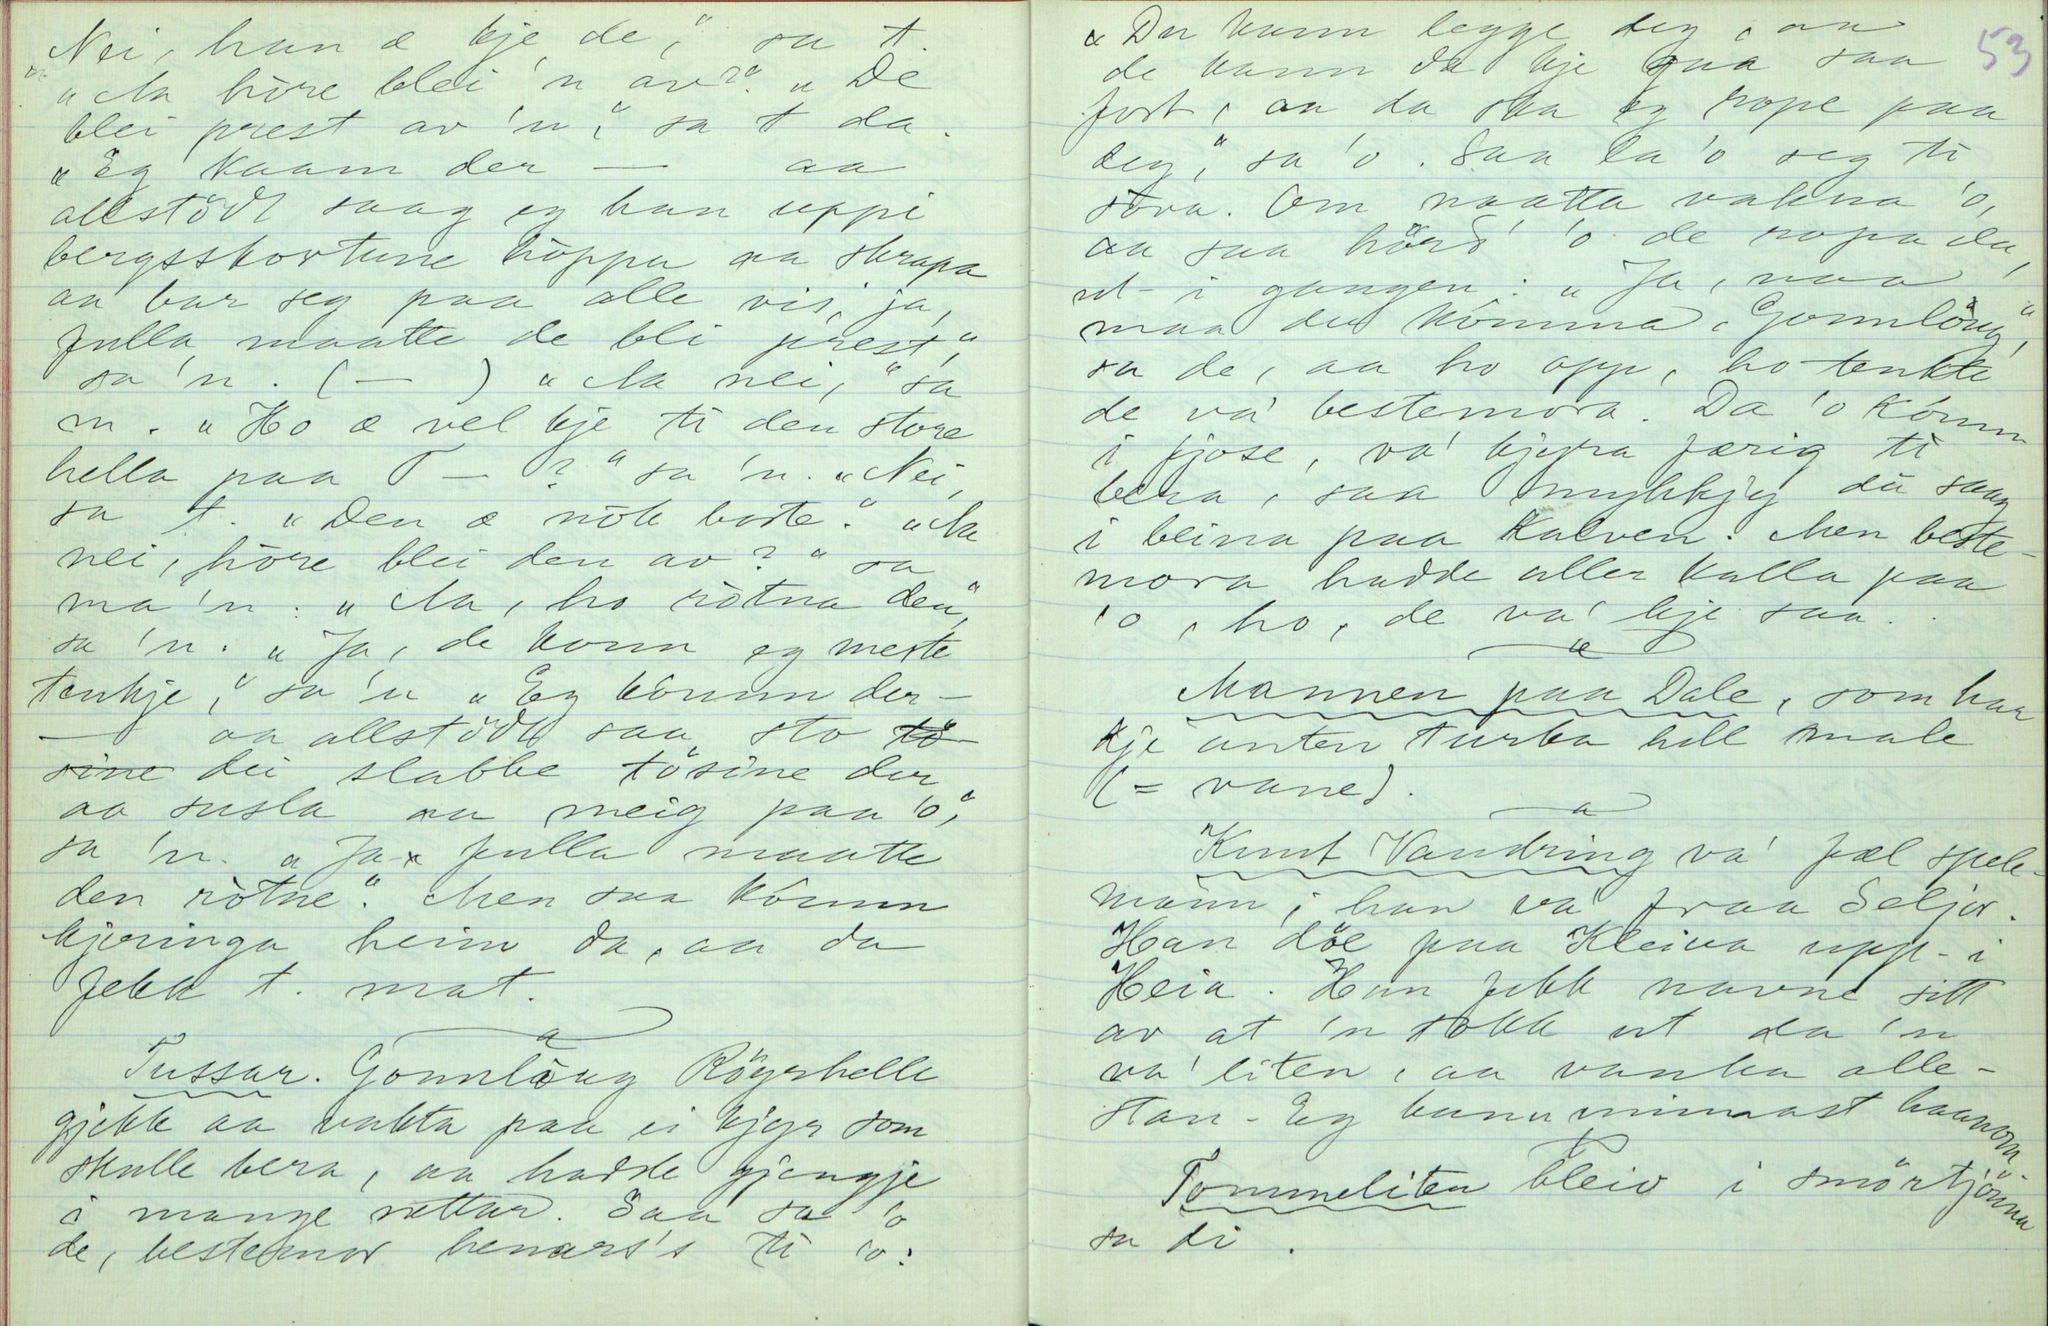 Nei, han æ kje de," sa t.
"Aa hòre blei 'n av?" "De
blei prest av 'n," sa t da.
"Eg kaam der — aa
allstödt saag eg han uppi
bergsskortune hoppa aa skrapa
aa bar seg paa alle vis, ja,
fulla maatte de bli prest",
sa 'n. ( — ) "Aa nei," sa
m. "Ho æ vel kje ti den store
hella paa T — ?" sa 'n. "Nei,
sa t. "Den æ nòk borte." "Aa
nei, hòre blei den av?" sa
ma'n. "Aa, ho ròtna den",
sa 'n. "Ja, de konn eg meste
tenkje," sa 'n "Eg kómm der —
— aa allstödt saa sto tö
sine dei slabbe tösine der
aa susla aa meig paa 'o",
sa 'n. "Ja fulla maatte
den ròtne". Men saa kómm
kjeringa heim da, aa da
fekk t. mat.
Tussar. Gonnlòug Röyrhelle
gjekk aa vakta paa ei kjyr som
skulle bera, aa hadde gjengje
i mange nettar. Saa sa 'o
de, bestemor hennars's ti 'o:
53
"Du kann legge deg, aa
de kann da kje gaa saa
fort, aa da ska eg rope paa
deg," sa 'o. Saa la 'o seg ti
sòva. Om naatta vakna 'o,
aa saa hörd' 'o de ropa da,
ut i gangen: "Ja, naa
maa du kómma, Gonnlòug",
sa de, aa ho opp, ho tenkte
de va' bestemora. Da 'o kómm
i fjose, va' kjyra færig ti
bera, saa smykkjy du saag
i beina paa kalven. Men beste-
mora hadde aller kalla paa
'o, ho, de va' kje saa.
Mannen paa Dale, som haa
kje anten turka hell male
(= vane).
Knut Vandring va' fæl spele-
mann; han va' fraa Seljor.
Han döe paa Kleiva upp-i
Heia. Han fekk navne sitt
av at 'n tokk ut da 'n
va' liten, aa vanka alle-
stan. Eg kann minnast haanom.
Tommeliten bleiv i smörtjönna
sa di.